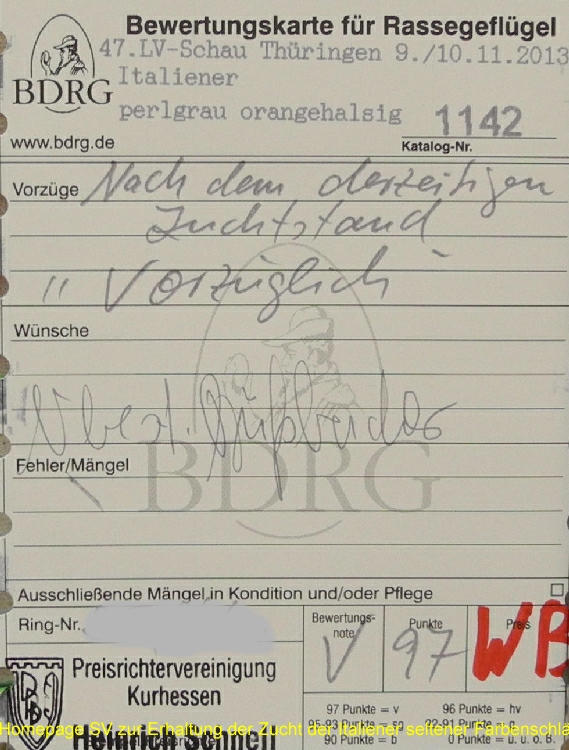 Bewertungskarte für Rassegeflügel
47.LV-Schau Thüringen 9./10.11.2013
Italiener
BDRG
perlgrau orangehalsig
1142
www.bdrg.de
Katalog-Nr.
Vorzüge Nach dem derzeitigen
Zuchtstand
" Vorzüglich "
Wünsche
Fehler/Mängel
BDRG
Ausschließende Mängel,in Kondition und/oder Pflege
Ring-Nr.
Bewertungs-
note
Punkte
Preis
V
97
WB
Preisrichtervereinigung
Kurhessen
97 Punkte = v
96 Punkte = hv
90 Punkte = b
0 Punkte = u. o. B.
Homepage SV zur Erhaltung der Zucht der Italiener seltener Farbenschlä